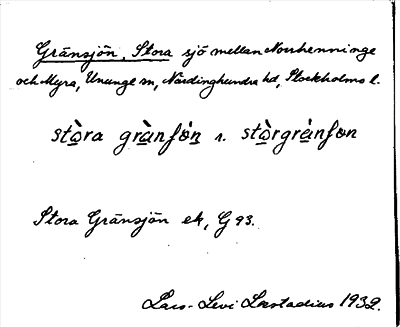 Gränsjön, Stora sjö mellan Norrhenninge
och Myra, Ununge sn, Närdinghundra hd, Stockholms l.
stòra grànʃön s. stòrgrànʃon
Stora Gränsjön ek, G 93.
Lars-Levi Læstadius 1932.